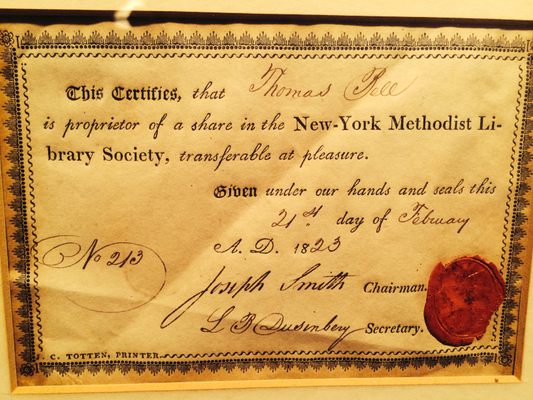 This Certifies, that Thomas Pell
is proprietor of a share in the New-York Methodist Li-
brary Society, transferable at pleasure.
Given under our hands and seals this
21st day of February
A. D. 1823
No 213
Joseph Smith Chairman.
L B Dusinbery Secretary.
J. C. TOTTEN, PRINTER.